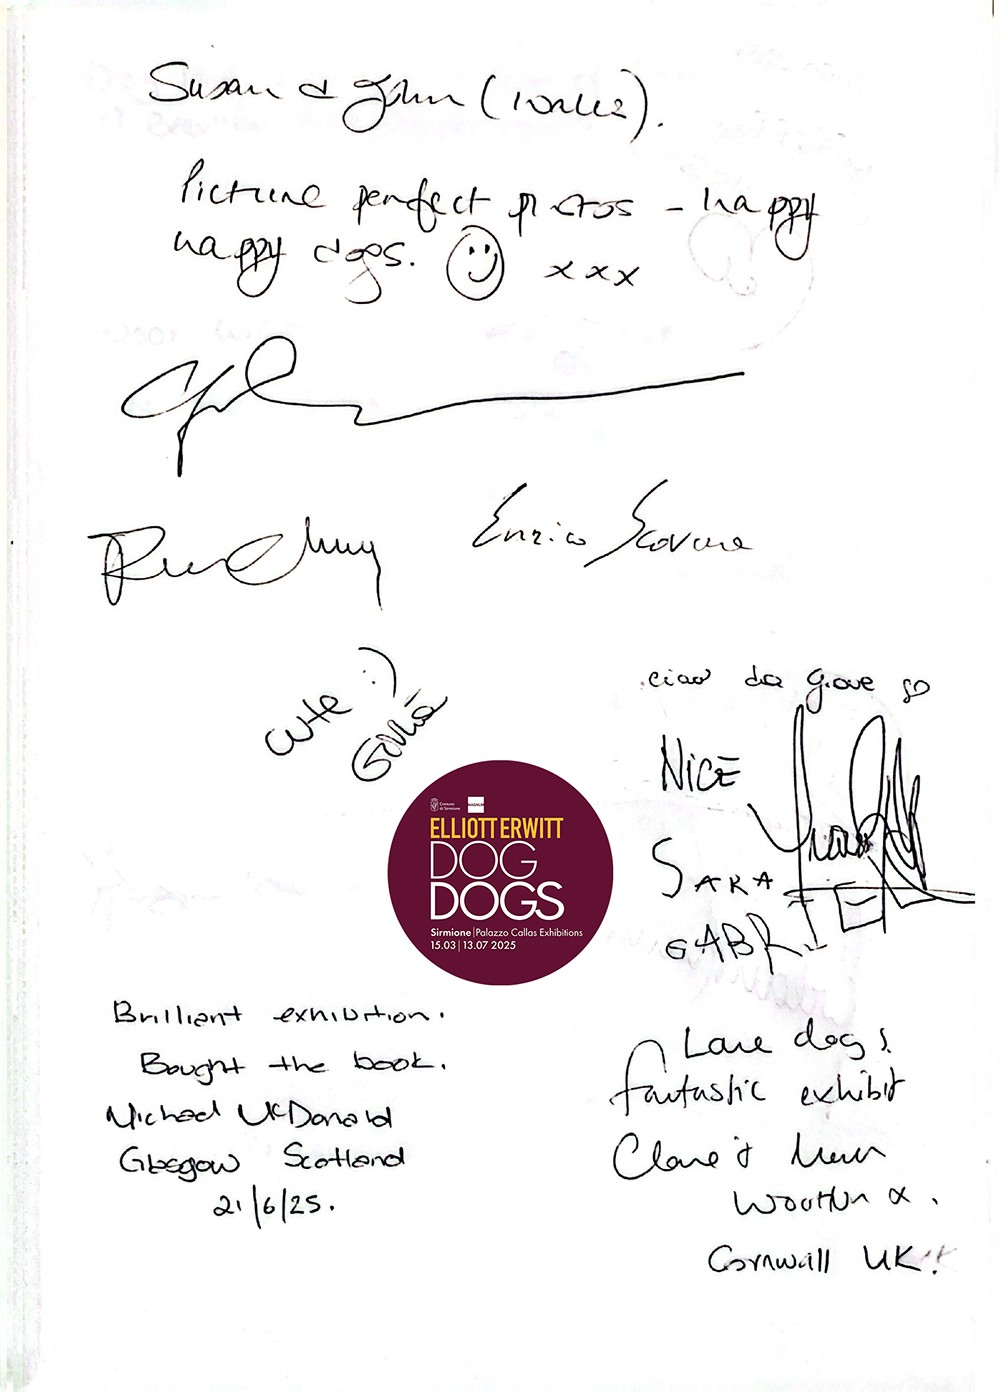 Susan & John (Wales).
Picture perfect photos - happy
happy dogs. xxx
Enrico
cute :)
Giulia
ciao da Giove
NICE
SARA
GABRIEL
Comune
di Sirmione
MAGNUM
ELLIOTT ERWITT
DOG
DOGS
Sirmione | Palazzo Callas Exhibitions
15.03 | 13.07 2025
Brilliant exhibition.
Bought the book.
Michael McDonald
Glasgow Scotland
21/6/25.
Love dogs
fantastic exhibit
Clare &
Cornwall UK!